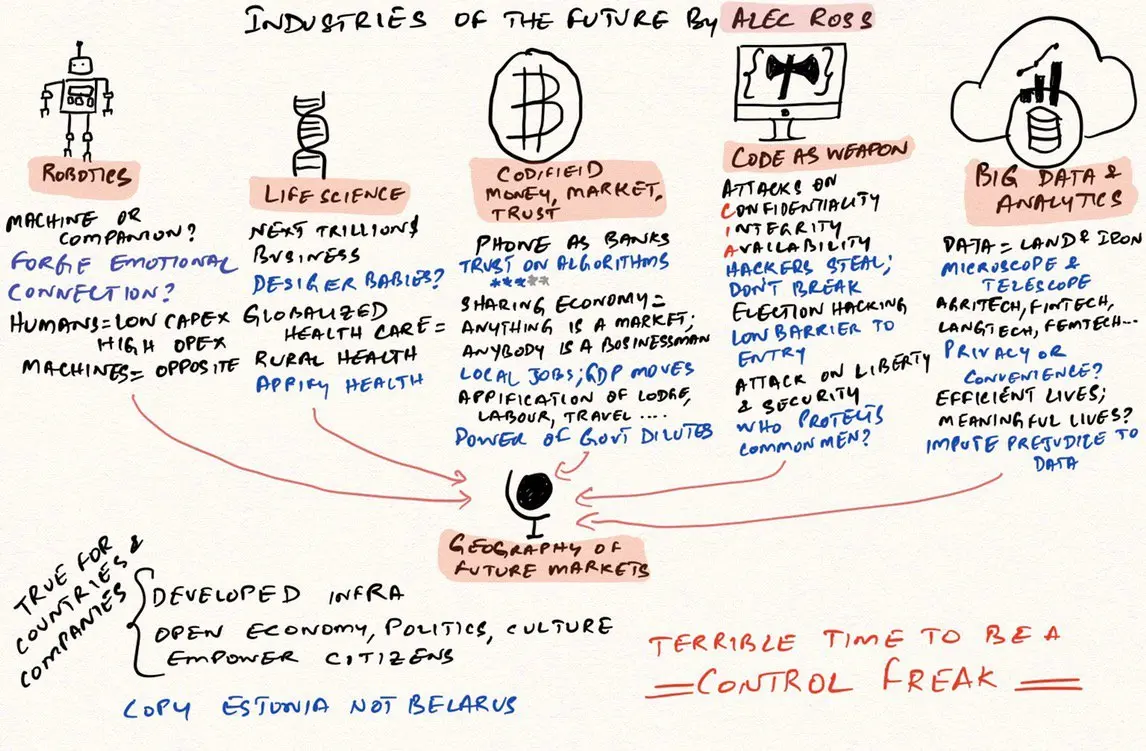 INDUSTRIES OF THE FUTURE By ALEC ROSS
ROBOTICS
MACHINE OR
COMPANION?
FORGE EMOTIONAL
CONNECTION?
HUMANS = LOW CAPEX
HIGH OPEX
MACHINES = OPPOSITE
LIFE SCIENCE
NEXT TRILLION $
BUSINESS
DESIGER BABIES?
GLOBALIZED
HEALTH CARE =
RURAL HEALTH
APPIFY HEALTH
CODIFIEID
MONEY, MARKET,
TRUST
PHONE AS BANKS
TRUST ON ALGORITHMS
*****
SHARING ECONOMY =
ANYTHING IS A MARKET;
ANYBODY IS A BUSINESSMAN
LOCAL JOBS; GDP MOVES
APPIFICATION OF LODGE,
LABOUR, TRAVEL ....
POWER OF GOVT DILUTES
{ }
CODE AS WEAPON
ATTACKS ON
CONFIDENTIALITY
INTEGRITY
AVAILABILITY
HACKERS STEAL;
DON'T BREAK
ELECTION HACKING
LOW BARRIER TO
ENTRY
ATTACK ON LIBERTY
& SECURITY
WHO PROTECTS
COMMON MEN?
BIG DATA &
ANALYTICS
DATA = LAND & IRON
MICROSCOPE &
TELESCOPE
AGRITECH, FINTECH,
LANGTECH, FEMTECH...
PRIVACY OR
CONVENIENCE?
EFFICIENT LIVES;
MEANINGFUL LIVES?
IMPUTE PREJUDICE TO
DATA
GEOGRAPHY OF
FUTURE MARKETS
TRUE FOR
COUNTRIES &
COMPANIES
DEVELOPED INFRA
OPEN ECONOMY, POLITICS, CULTURE
EMPOWER CITIZENS
COPY ESTONIA NOT BELARUS
TERRIBLE TIME TO BE A
CONTROL FREAK